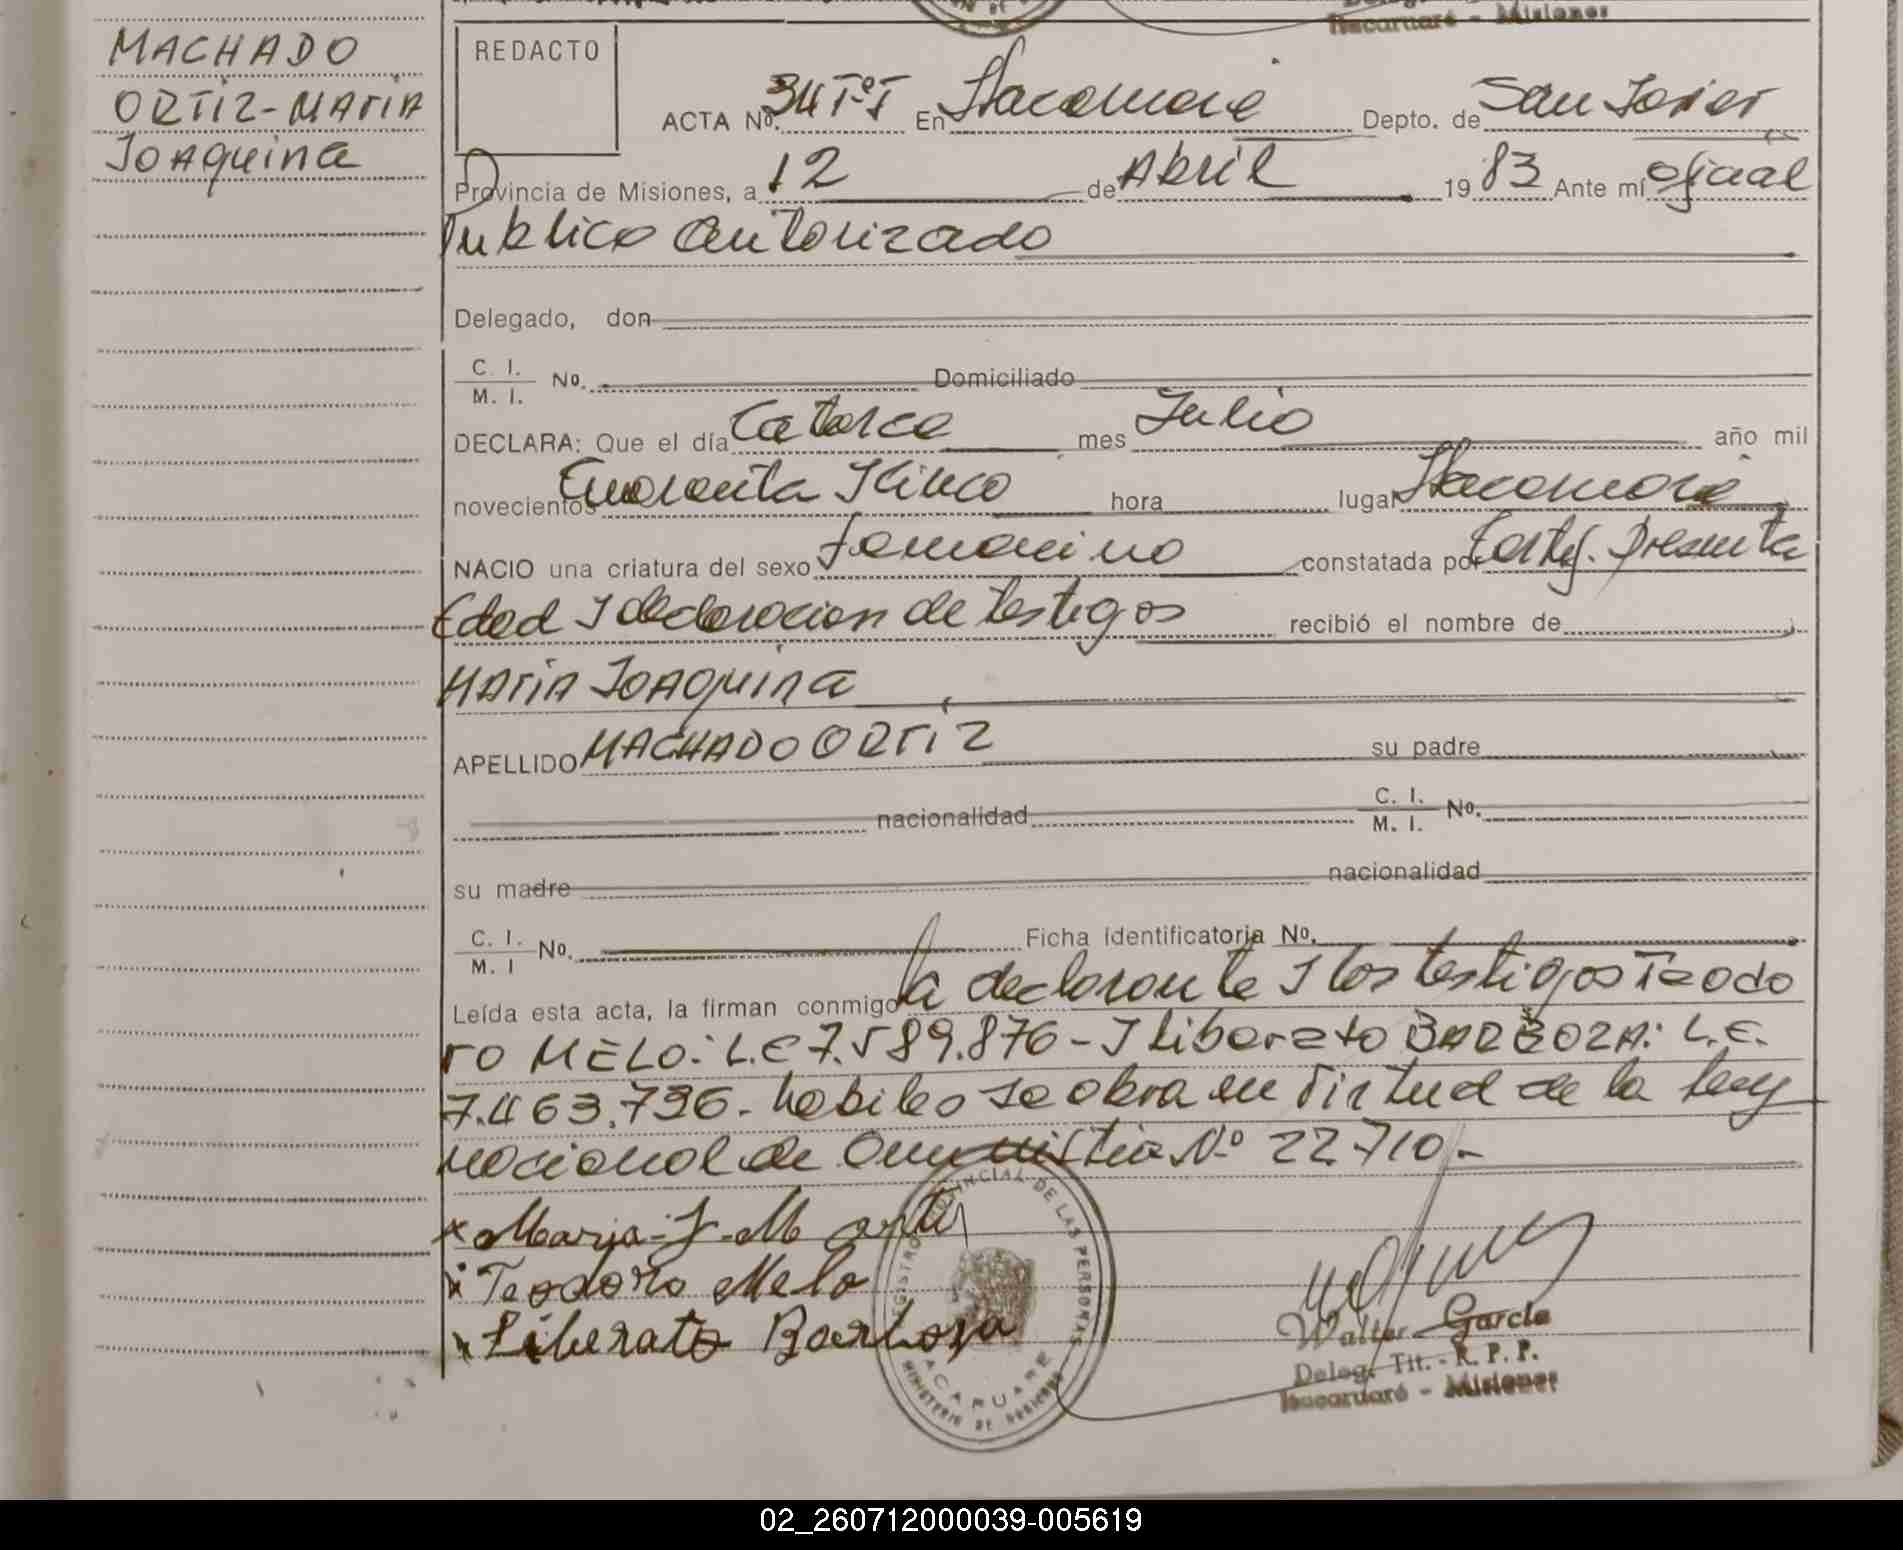 Itacaruaré - Misiones
MACHADO
ORTIZ-MARIA
JOAQUINA
REDACTO
ACTA Nº. 34 Tº I En Itacaruaré Depto. de San Javier
Provincia de Misiones, a 12 de Abril 1983 Ante mí oficial
Publico autorizado
Delegado, don
C. I.
M. I. No. Domiciliado
DECLARA: Que el día Catorce mes Julio año mil
novecientos Cuarenta I Cinco hora lugar Itacaruaré
NACIO una criatura del sexo femenino constatada por Certif. Presunta
Edad I declaracion de testigos recibió el nombre de
MARIA JOAQUINA
APELLIDO MACHADO ORTIZ su padre
nacionalidad C. I.
M. I. No.
su madre nacionalidad
C. I.
M. I No. Ficha Identificatoria No.
Leída esta acta, la firman conmigo la declarante I los testigos Teodo
ro MELO: L.E 7.589.876 - I liberato BARBOZA: L.E.
7.463.796. habiles se obra en virtud de la ley
nacional de Amnistia Nº 22.710.-
x Maria J. M
x Teodoro Melo
x Liberato Barboza
REGISTRO PROVINCIAL DE LAS PERSONAS
ITACARUARE
MINISTERIO DE GOBIERNO
Walter García
Deleg. Tit. - R. P. P.
Itacaruaré - Misiones
02_260712000039-005619